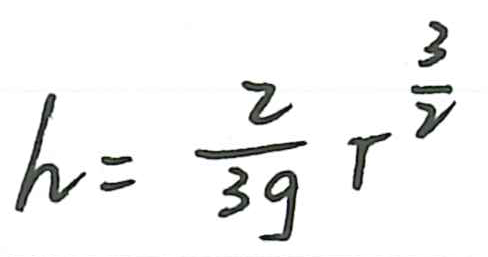 h = \frac{2}{3g} r^{\frac{3}{2}}